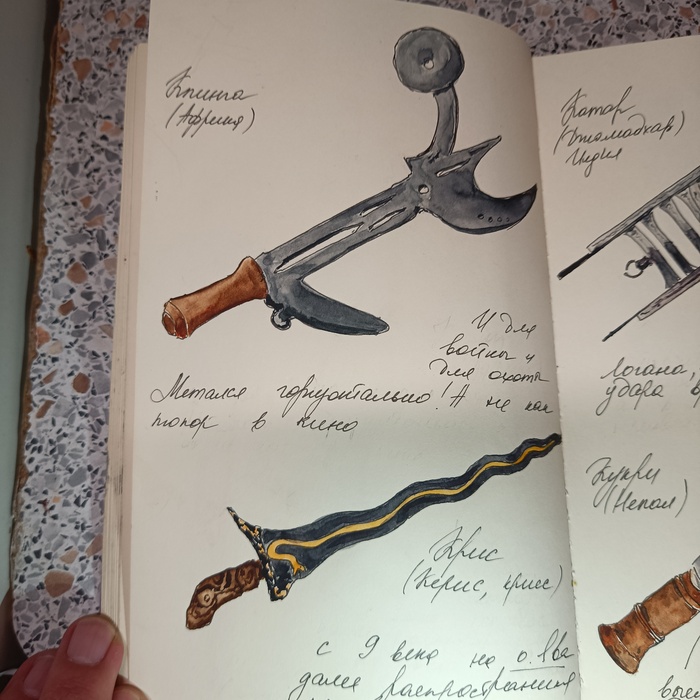 Кпинга
(Африка)
И для
войны и
для охоты
Метался горизонтально! А не как
топор в кино
Крис
(Керис, крисс)
с 9 века на о. Ява
далее распространился
Катар
(Джамадхар)
Индия
удара
Кукри
(Непал)